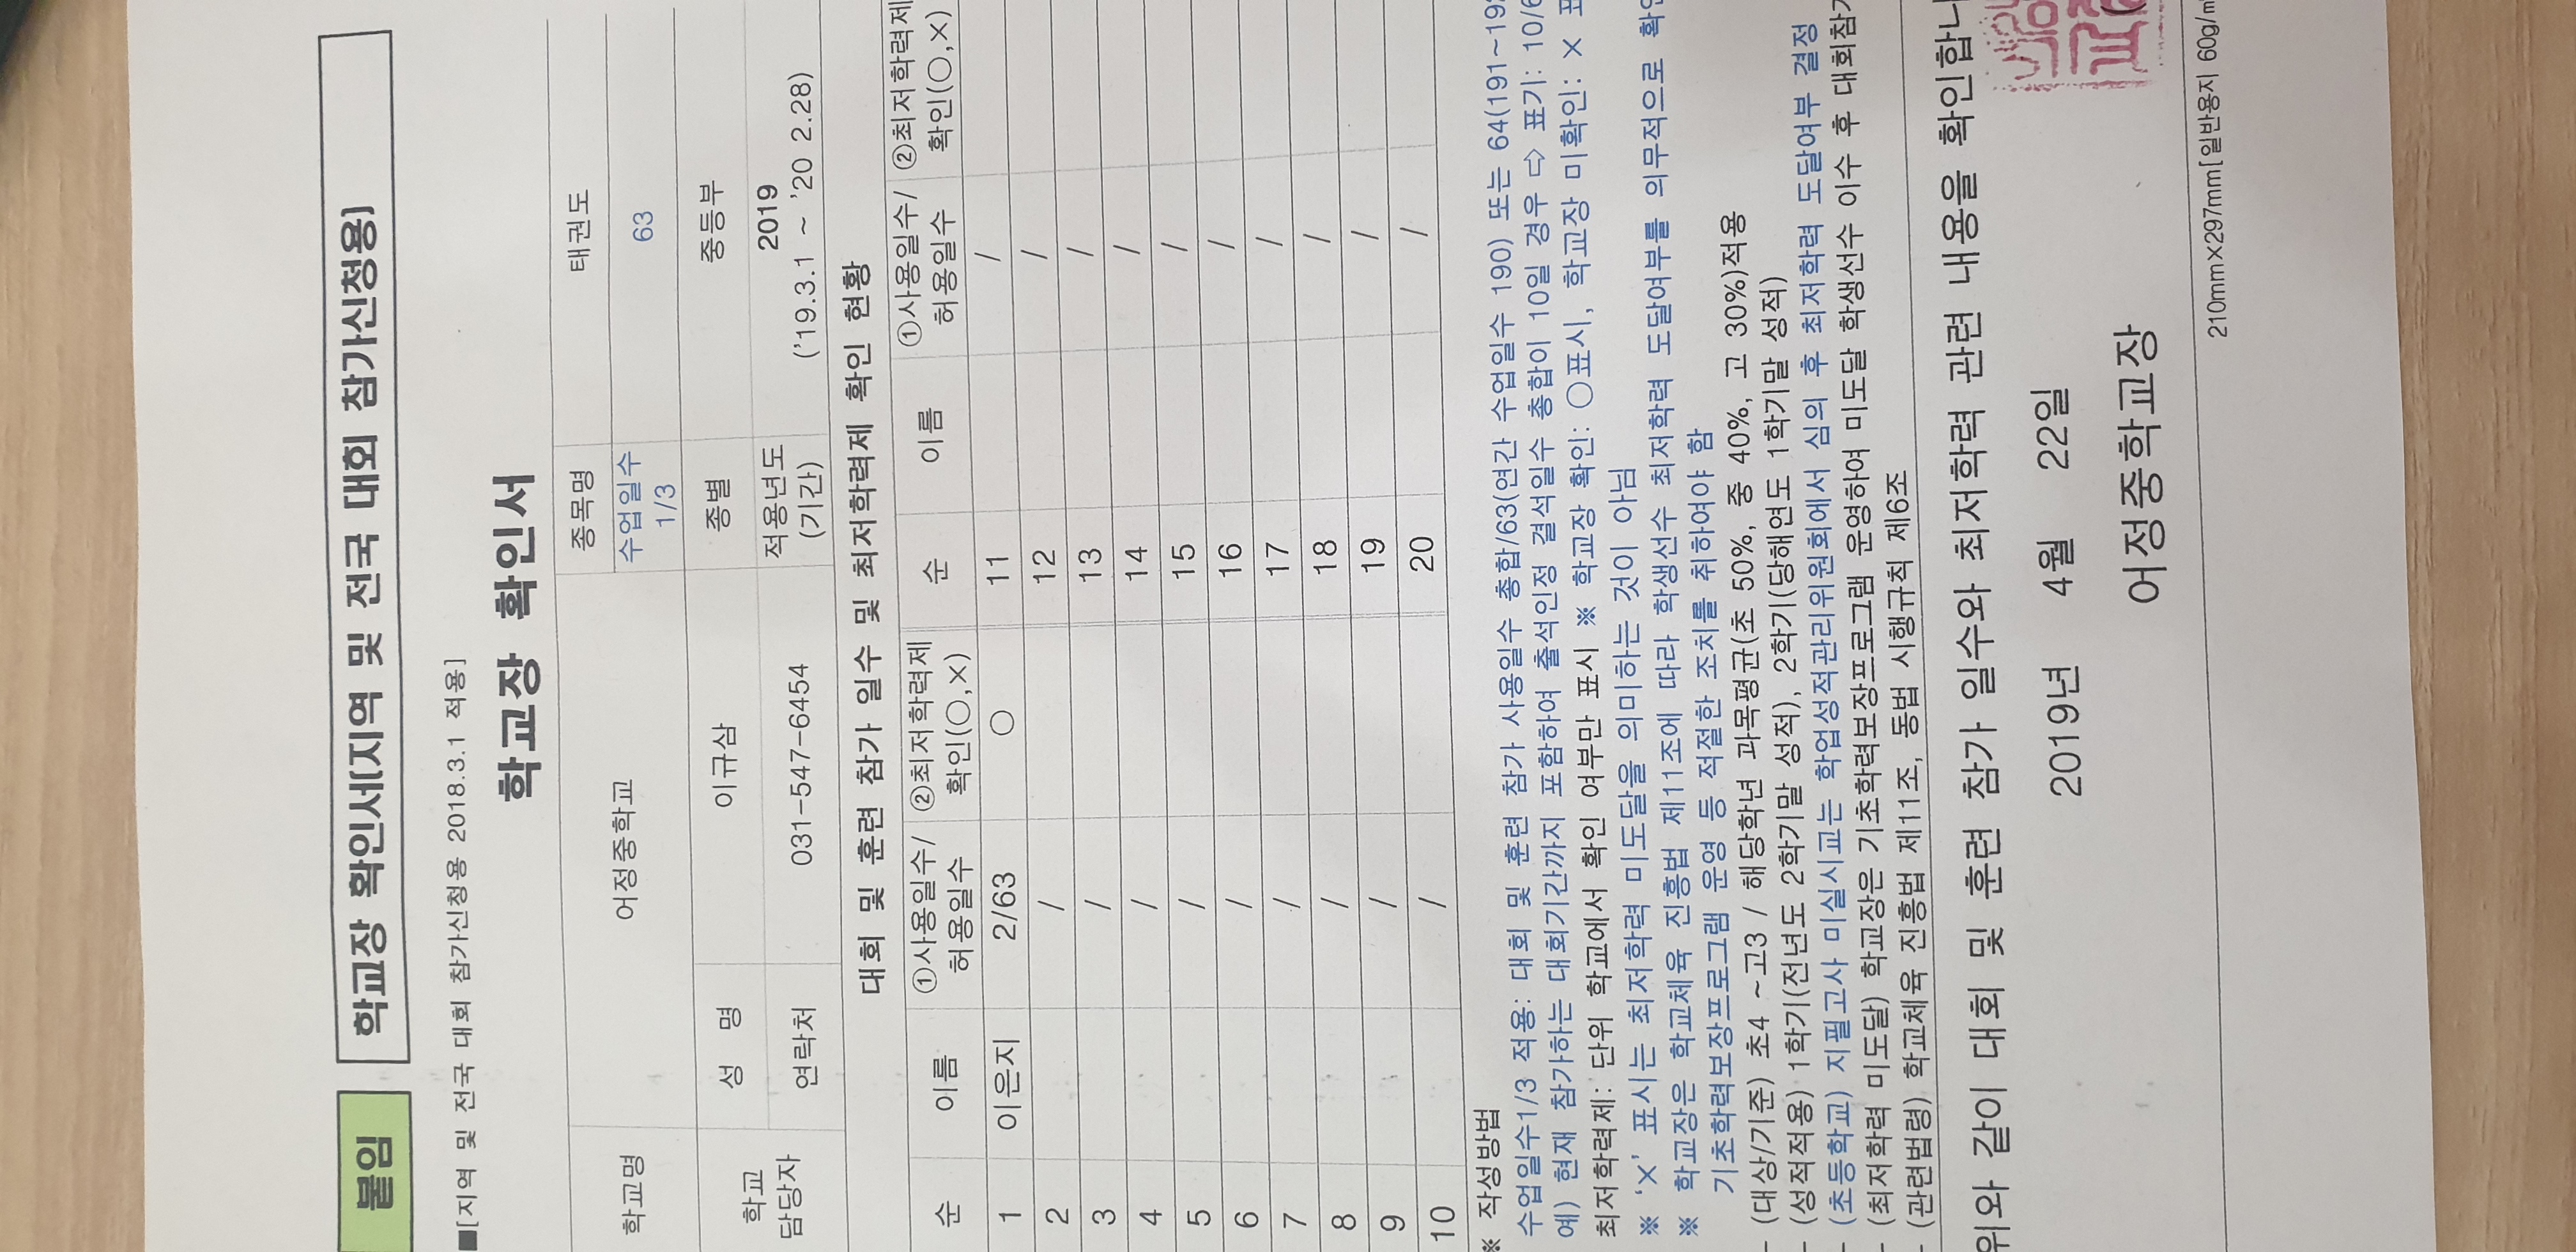 붙임 학교장 확인서(지역 및 전국 대회 참가신청용)
■[지역 및 전국 대회 참가신청용 2018.3.1 적용]
학교장 확인서
학교명 어정중학교 종목명 태권도
수업일수 1/3 63
학교 담당자 성 명 이규삼 종별 중등부
연락처 031-547-6454 적용년도 (기간) 2019 ('19.3.1 ~ '20 2.28)
대회 및 훈련 참가 일수 및 최저학력제 확인 현황
순 이름 ①사용일수/허용일수 ②최저학력제 확인(○,×) 순 이름 ①사용일수/허용일수 ②최저학력제 확인(○,×)
1 이은지 2/63 ○ 11 /
2 / 12 /
3 / 13 /
4 / 14 /
5 / 15 /
6 / 16 /
7 / 17 /
8 / 18 /
9 / 19 /
10 / 20 /
※ 작성방법
수업일수1/3 적용: 대회 및 훈련 참가 사용일수 총합/63(연간 수업일수 190) 또는 64(191~192
예) 현재 참가하는 대회기간까지 포함하여 출석인정 결석일수 총합이 10일 경우 ⇨ 표기: 10/6
최저학력제: 단위 학교에서 확인 여부만 표시 ※ 학교장 확인: ○표시, 학교장 미확인: × 표
※ '×' 표시는 최저학력 미도달을 의미하는 것이 아님
※ 학교장은 학교체육 진흥법 제11조에 따라 학생선수 최저학력 도달여부를 의무적으로 확인
기초학력보장프로그램 운영 등 적절한 조치를 취하여야 함
- (대상/기준) 초4 ~고3 / 해당학년 과목평균(초 50%, 중 40%, 고 30%)적용
- (성적적용) 1학기(전년도 2학기말 성적), 2학기(당해연도 1학기말 성적)
- (초등학교) 지필고사 미실시교는 학업성적관리위원회에서 심의 후 최저학력 도달여부 결정
- (최저학력 미도달) 학교장은 기초학력보장프로그램 운영하여 미도달 학생선수 이수 후 대회참가
- (관련법령) 학교체육 진흥법 제11조, 동법 시행규칙 제6조
위와 같이 대회 및 훈련 참가 일수와 최저학력 관련 내용을 확인합니
2019년 4월 22일
어정중학교장
210mm×297mm[일반용지 60g/㎡